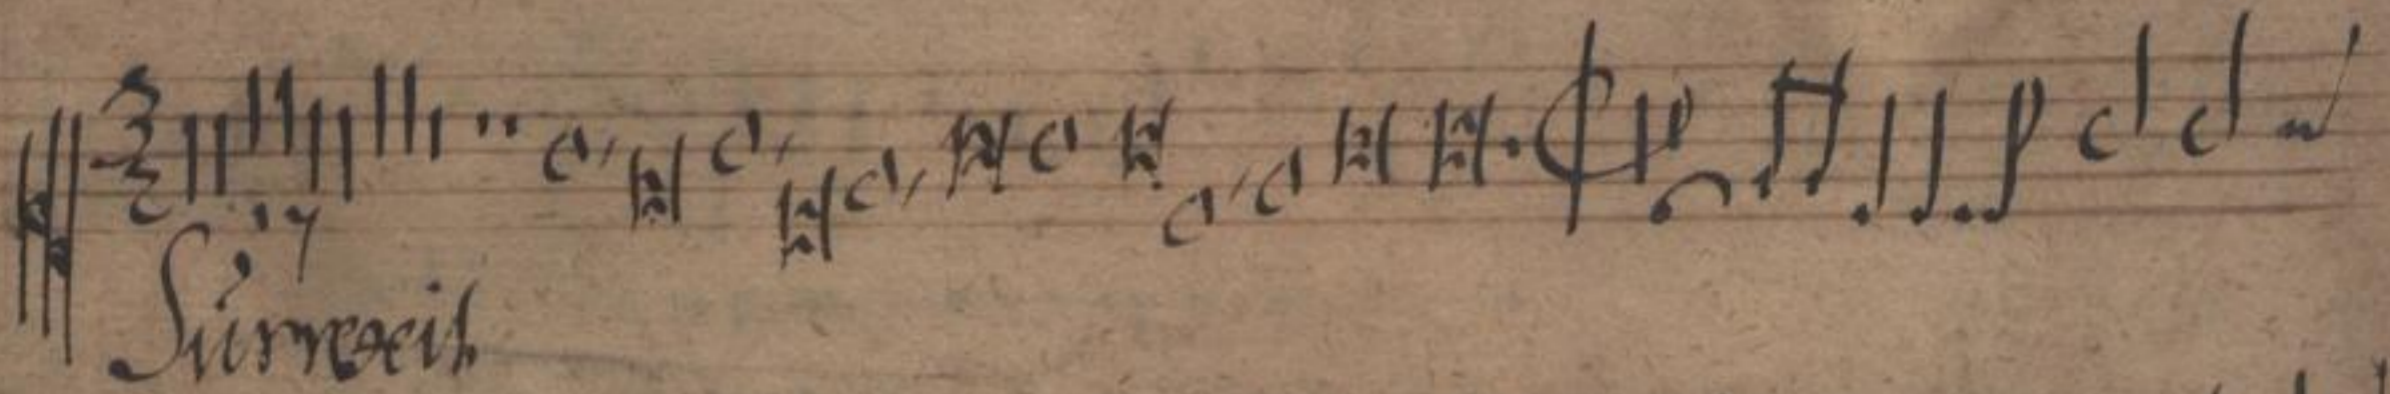 17
Surrexit